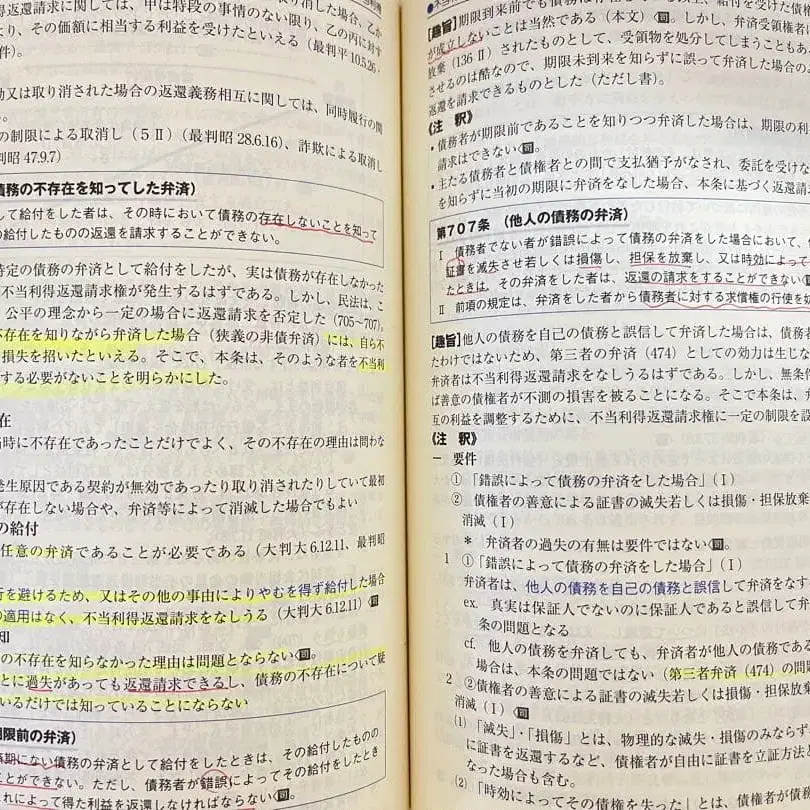 得返還請求に関しては、甲は特段の事情のない限り、乙の丙に対す
より、その価額に相当する利益を受けたといえる（最判平10.5.26・
件）。
又は取り消された場合の返還義務相互に関しては、同時履行の関
の制限による取消し（5Ⅱ）（最判昭28.6.16）、詐欺による取消し
判昭47.9.7）
債務の不存在を知ってした弁済）
して給付をした者は、その時において債務の存在しないことを知って
の給付したものの返還を請求することができない。
特定の債務の弁済として給付をしたが、実は債務が存在しなかった
不当利得返還請求権が発生するはずである。しかし、民法は、こ
公平の理念から一定の場合に返還請求を否定した（705～707）。
不存在を知りながら弁済した場合（狭義の非債弁済）には、自ら不
損失を招いたといえる。そこで、本条は、そのような者を不当利
する必要がないことを明らかにした。
在
当時に不存在であったことだけでよく、その不存在の理由は問わな
発生原因である契約が無効であったり取り消されたりしていて最初
が存在しない場合や、弁済等によって消滅した場合でもよい
の給付
任意の弁済であることが必要である（大判大6.12.11、最判昭
行を避けるため、又はその他の事由によりやむを得ず給付した場合
の適用はなく、不当利得返還請求をなしうる（大判大6.12.11）司
知
の不存在を知らなかった理由は問題とならない司。
とに過失があっても返還請求できるし、債務の不存在について疑
いるだけでは知っていることにならない
期限前の弁済）
期にない債務の弁済として給付をしたときは、その給付したものの
ことができない。ただし、債務者が錯誤によってその給付をしたとき
れによって得た利益を返還しなければならない司。
[趣旨]期限到来前でも債務は
が成立しないことは当然である（本文）司。しかし、弁済受領者に
放棄（136Ⅱ）されたものとして、受領物を処分してしまうこともあ
させるのは酷なので、期限未到来を知らずに誤って弁済した場合のよ
返還を請求できるものとした（ただし書）。
《注 釈》
・債務者が期限前であることを知りつつ弁済した場合は、期限の利
請求はできない司。
・主たる債務者と債権者との間で支払猶予がなされ、委託を受けな
を知らずに当初の期限に弁済をなした場合、本条に基づく返還請
第707条 （他人の債務の弁済）
Ⅰ 債務者でない者が錯誤によって債務の弁済をした場合において、
証書を滅失させ若しくは損傷し、担保を放棄し、又は時効によって
たときは、その弁済をした者は、返還の請求をすることができない司
Ⅱ 前項の規定は、弁済をした者から債務者に対する求償権の行使を妨
[趣旨]他人の債務を自己の債務と誤信して弁済した場合は、債務者
たわけではないため、第三者の弁済（474）としての効力は生じな
弁済者は不当利得返還請求をなしうるはずである。しかし、無条件
ば善意の債権者が不測の損害を被ることになる。そこで本条は、弁
互の利益を調整するために、不当利得返還請求権に一定の制限を設
《注 釈》
一 要件
① 「錯誤によって債務の弁済をした場合」（Ⅰ）
② 債権者の善意による証書の滅失若しくは損傷・担保放棄
消滅（Ⅰ）
＊ 弁済者の過失の有無は要件ではない司。
1 ①「錯誤によって債務の弁済をした場合」（Ⅰ）
弁済者は、他人の債務を自己の債務と誤信して弁済をなす
ex. 真実は保証人でないのに保証人であると誤信して弁
条の問題となる
cf. 他人の債務を弁済しても、弁済者が他人の債務であ
場合は、本条の問題ではない（第三者弁済（474）の問題
2 ②債権者の善意による証書の滅失若しくは損傷・担保放棄
消滅（Ⅰ）司
(1) 「滅失」・「損傷」とは、物理的な滅失・損傷のみならず
に証書を返還するなど、債権者が自由に証書を立証方法と
なった場合も含む。
(2) 「時効によってその権利を失った」とは、債権者が債務